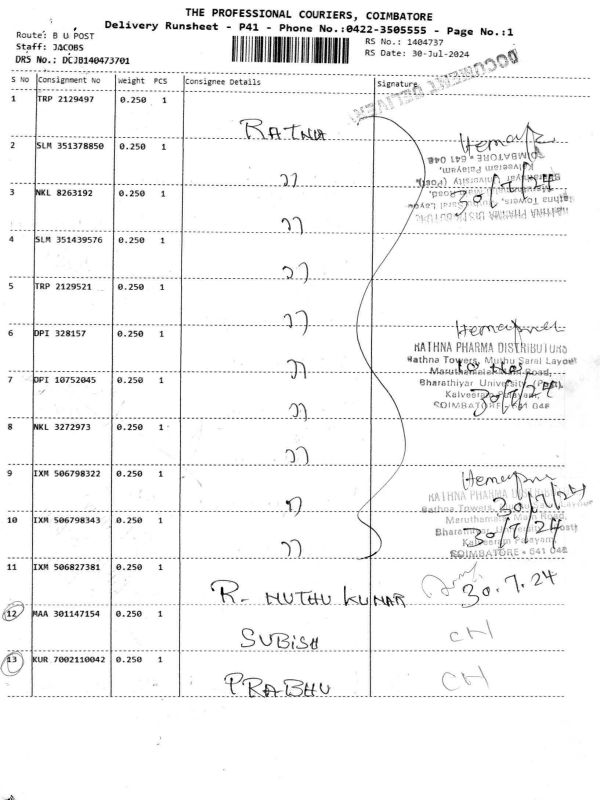 THE PROFESSIONAL COURIERS, COIMBATORE
Delivery Runsheet - P41 - Phone No.:0422-3505555 - Page No.:1
Route: B U POST
RS No.: 1404737
Staff: JACOBS
RS Date: 30-Jul-2024
DRS No.: DCJB140473701
DOCUMENT DELIVERY
S No Consignment No Weight PCS Consignee Details Signature
1 TRP 2129497 0.250 1 RATNA
2 SLM 351378850 0.250 1 ,,
3 NKL 8263192 0.250 1 ,, 30/7/24
4 SLM 351439576 0.250 1 ,,
5 TRP 2129521 0.250 1 ,,
6 DPI 328157 0.250 1 ,,
RATHNA PHARMA DISTRIBUTORS
Rathna Towers, Muthu Saral Layout
Maruthamalai Main Road,
7 DPI 10752045 0.250 1 ,,
Bharathiyar University (Post)
Kalveeram Palayam,
30/7/24
COIMBATORE - 641 046
8 NKL 3272973 0.250 1 ,,
9 IXM 506798322 0.250 1 ,,
RATHNA PHARMA
30/7/24
10 IXM 506798343 0.250 1 ,, 30/7/24
Kalveeram Palayam
COIMBATORE - 641 046
11 IXM 506827381 0.250 1 R. MUTHU KUMAR 30.7.24
12 MAA 301147154 0.250 1 SUBISH CH
13 KUR 7002110042 0.250 1 PRABHU CH